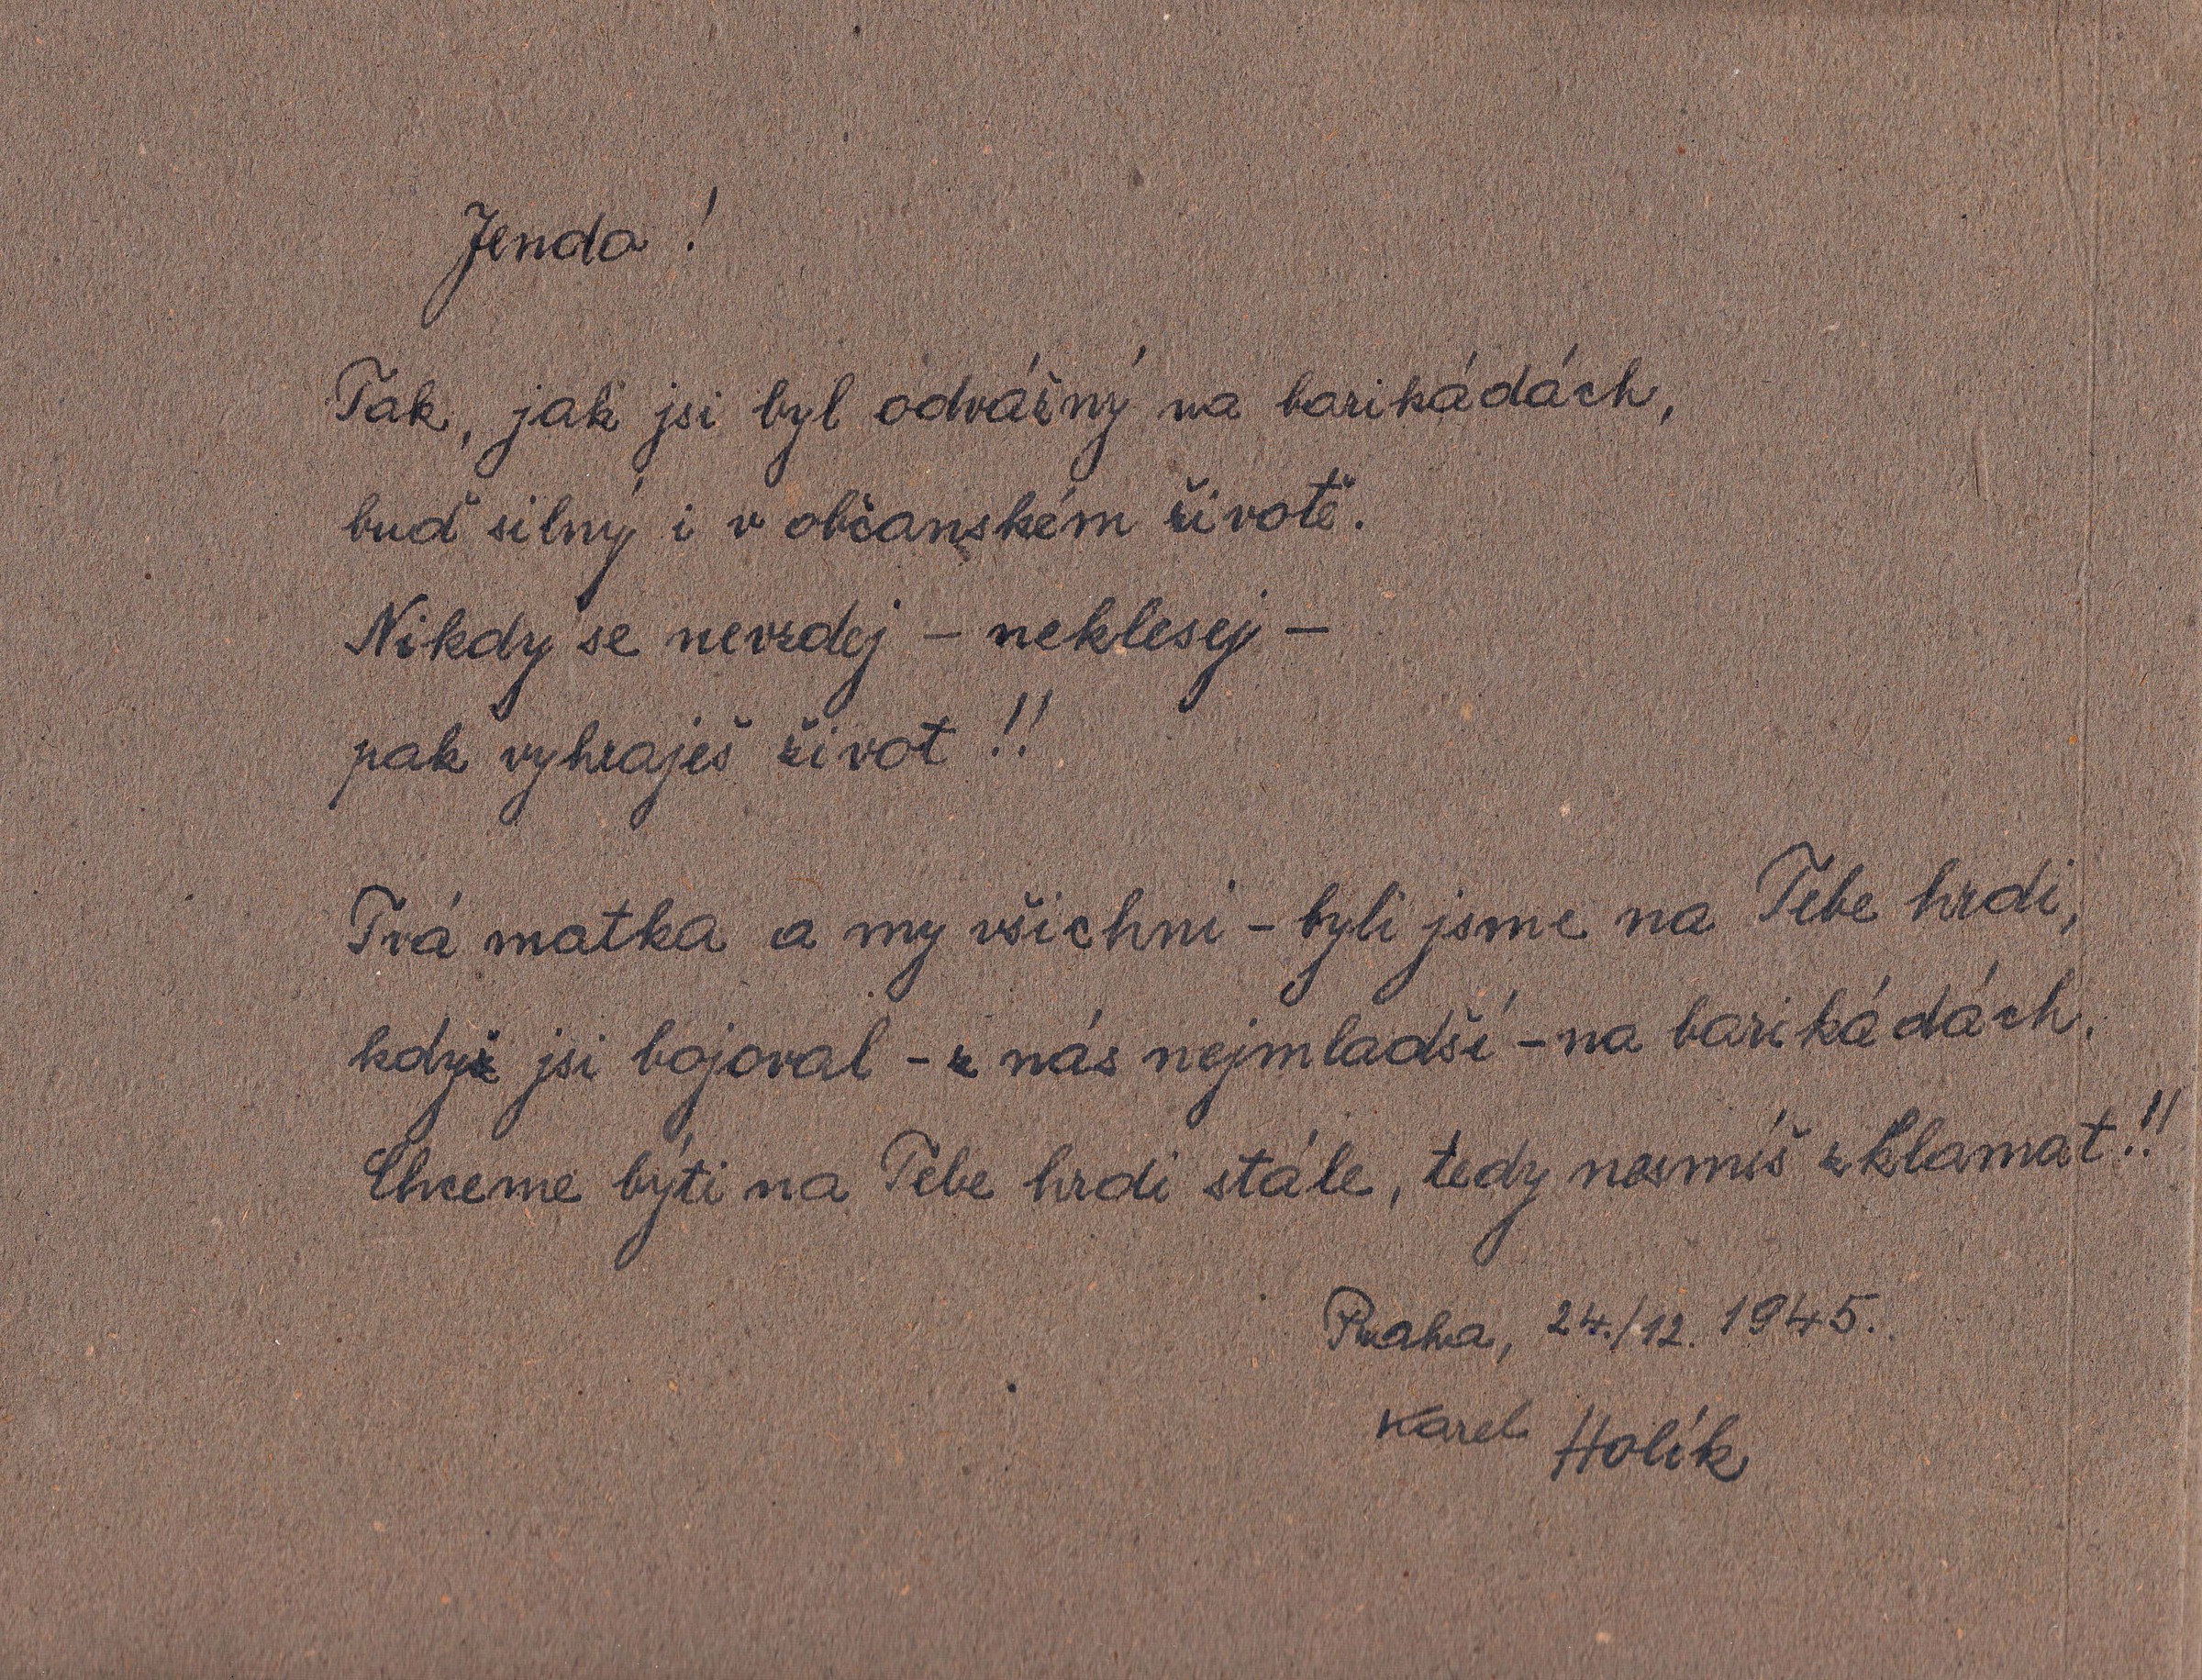 Jenda !
Tak, jak jsi byl odvážný na barikádách,
buď silný i v občanském životě.
Nikdy se nevzdej – neklesej –
pak vyhraješ život !!
Tvá matka a my všichni – byli jsme na Tebe hrdi,
když jsi bojoval – z nás nejmladší – na barikádách.
Chceme býti na Tebe hrdi stále, tedy nesmíš zklamat !!
Praha, 24./12. 1945.
Karel Holík